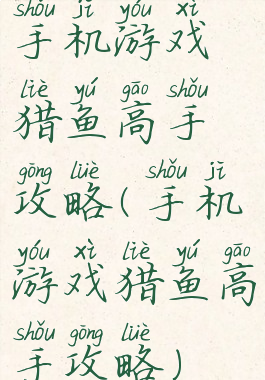 shǒu jī yóu xì
手机游戏
liè yú gāo shǒu
猎鱼高手
gōng lüè shǒu jī
攻略(手机
yóu xì liè yú gāo
游戏猎鱼高
shǒu gōng lüè
手攻略)